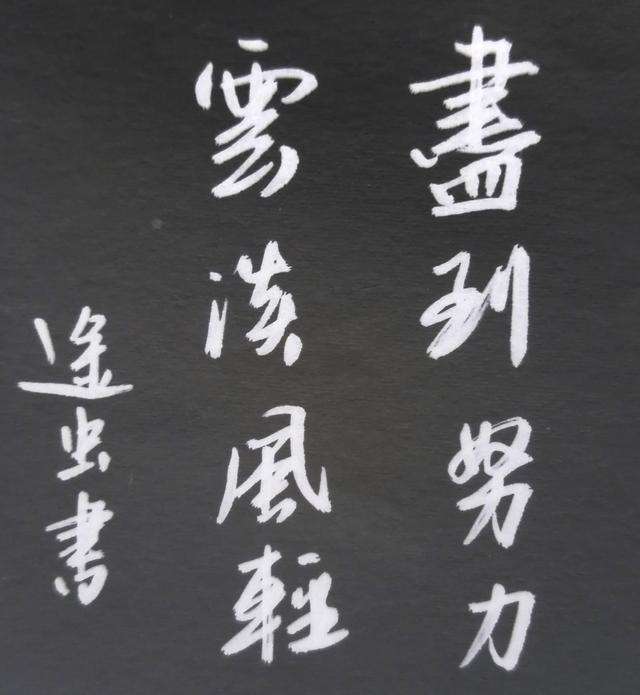 盡到努力
雲淡風輕
途虫書